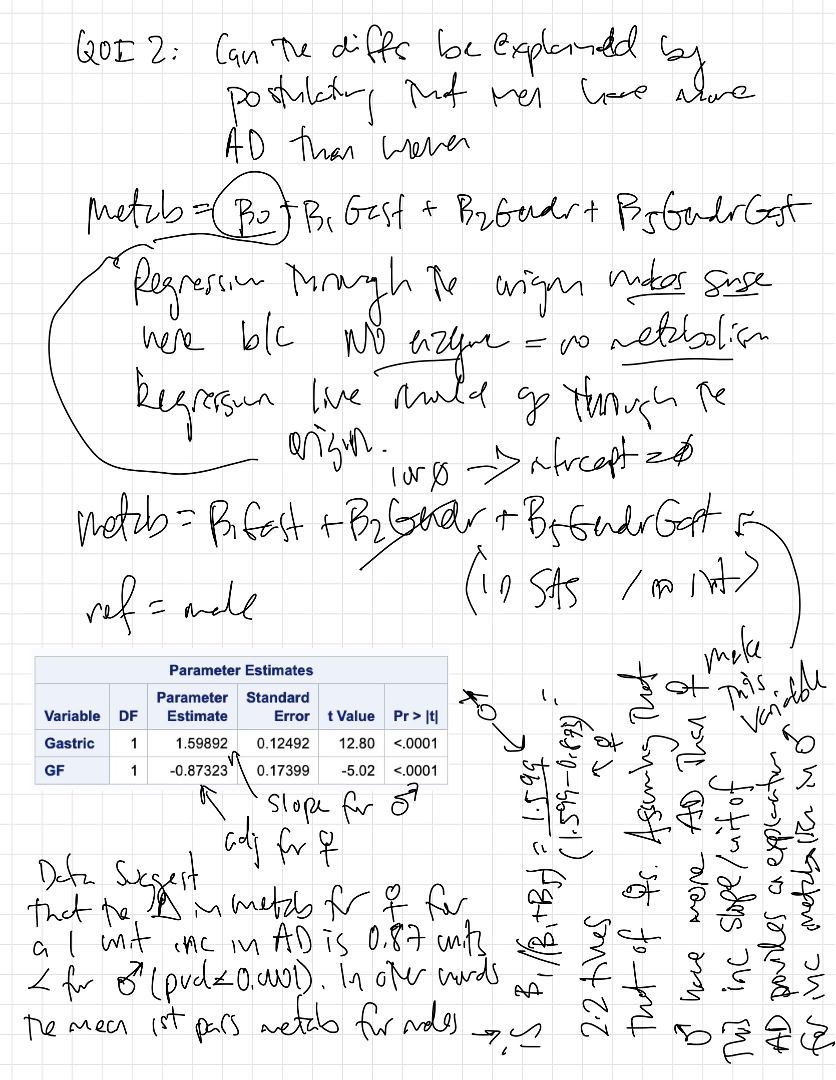 QOI 2: Can the diffs be explained by
postulating that men have more
AD than women
Metab = B0 + B1 Gast + B2 Gendr + B5 GendrGast
Regression through the origin makes sense
here b/c NO enzyme = no metabolism
Regression line should go through the
origin.
→ intrcept = ∅
Metab = B1 Gast + B2 Gendr + B5 GendrGast
(in SAS / no int)
ref = male
make
this
variable
Parameter Estimates
Variable DF Parameter Estimate Standard Error t Value Pr > |t|
Gastric 1 1.59892 0.12492 12.80 <.0001
GF 1 -0.87323 0.17399 -5.02 <.0001
slope for ♂
adj for ♀
Data suggest
that the Δ in metab for ♀ for
a 1 unit inc in AD is 0.87 units
< for ♂ (pval<0.0001). In other words
the mean 1st pass metab for males →
♂
is B1/(B1+B5) = 1.599 / (1.599-0.873) =
♀
2.2 times
that of ♀s. Assuming that
♂ have more AD than ♀
this inc slope/unit of
AD provides an explanation
for inc metabolism in ♂